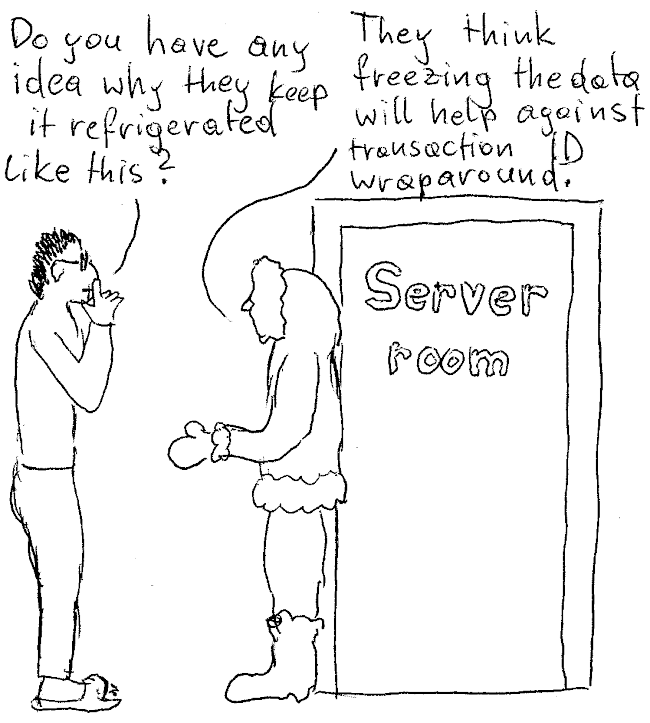 Do you have any
idea why they keep
it refrigerated
like this?
They think
freezing the data
will help against
transaction ID
wraparound.
Server
room